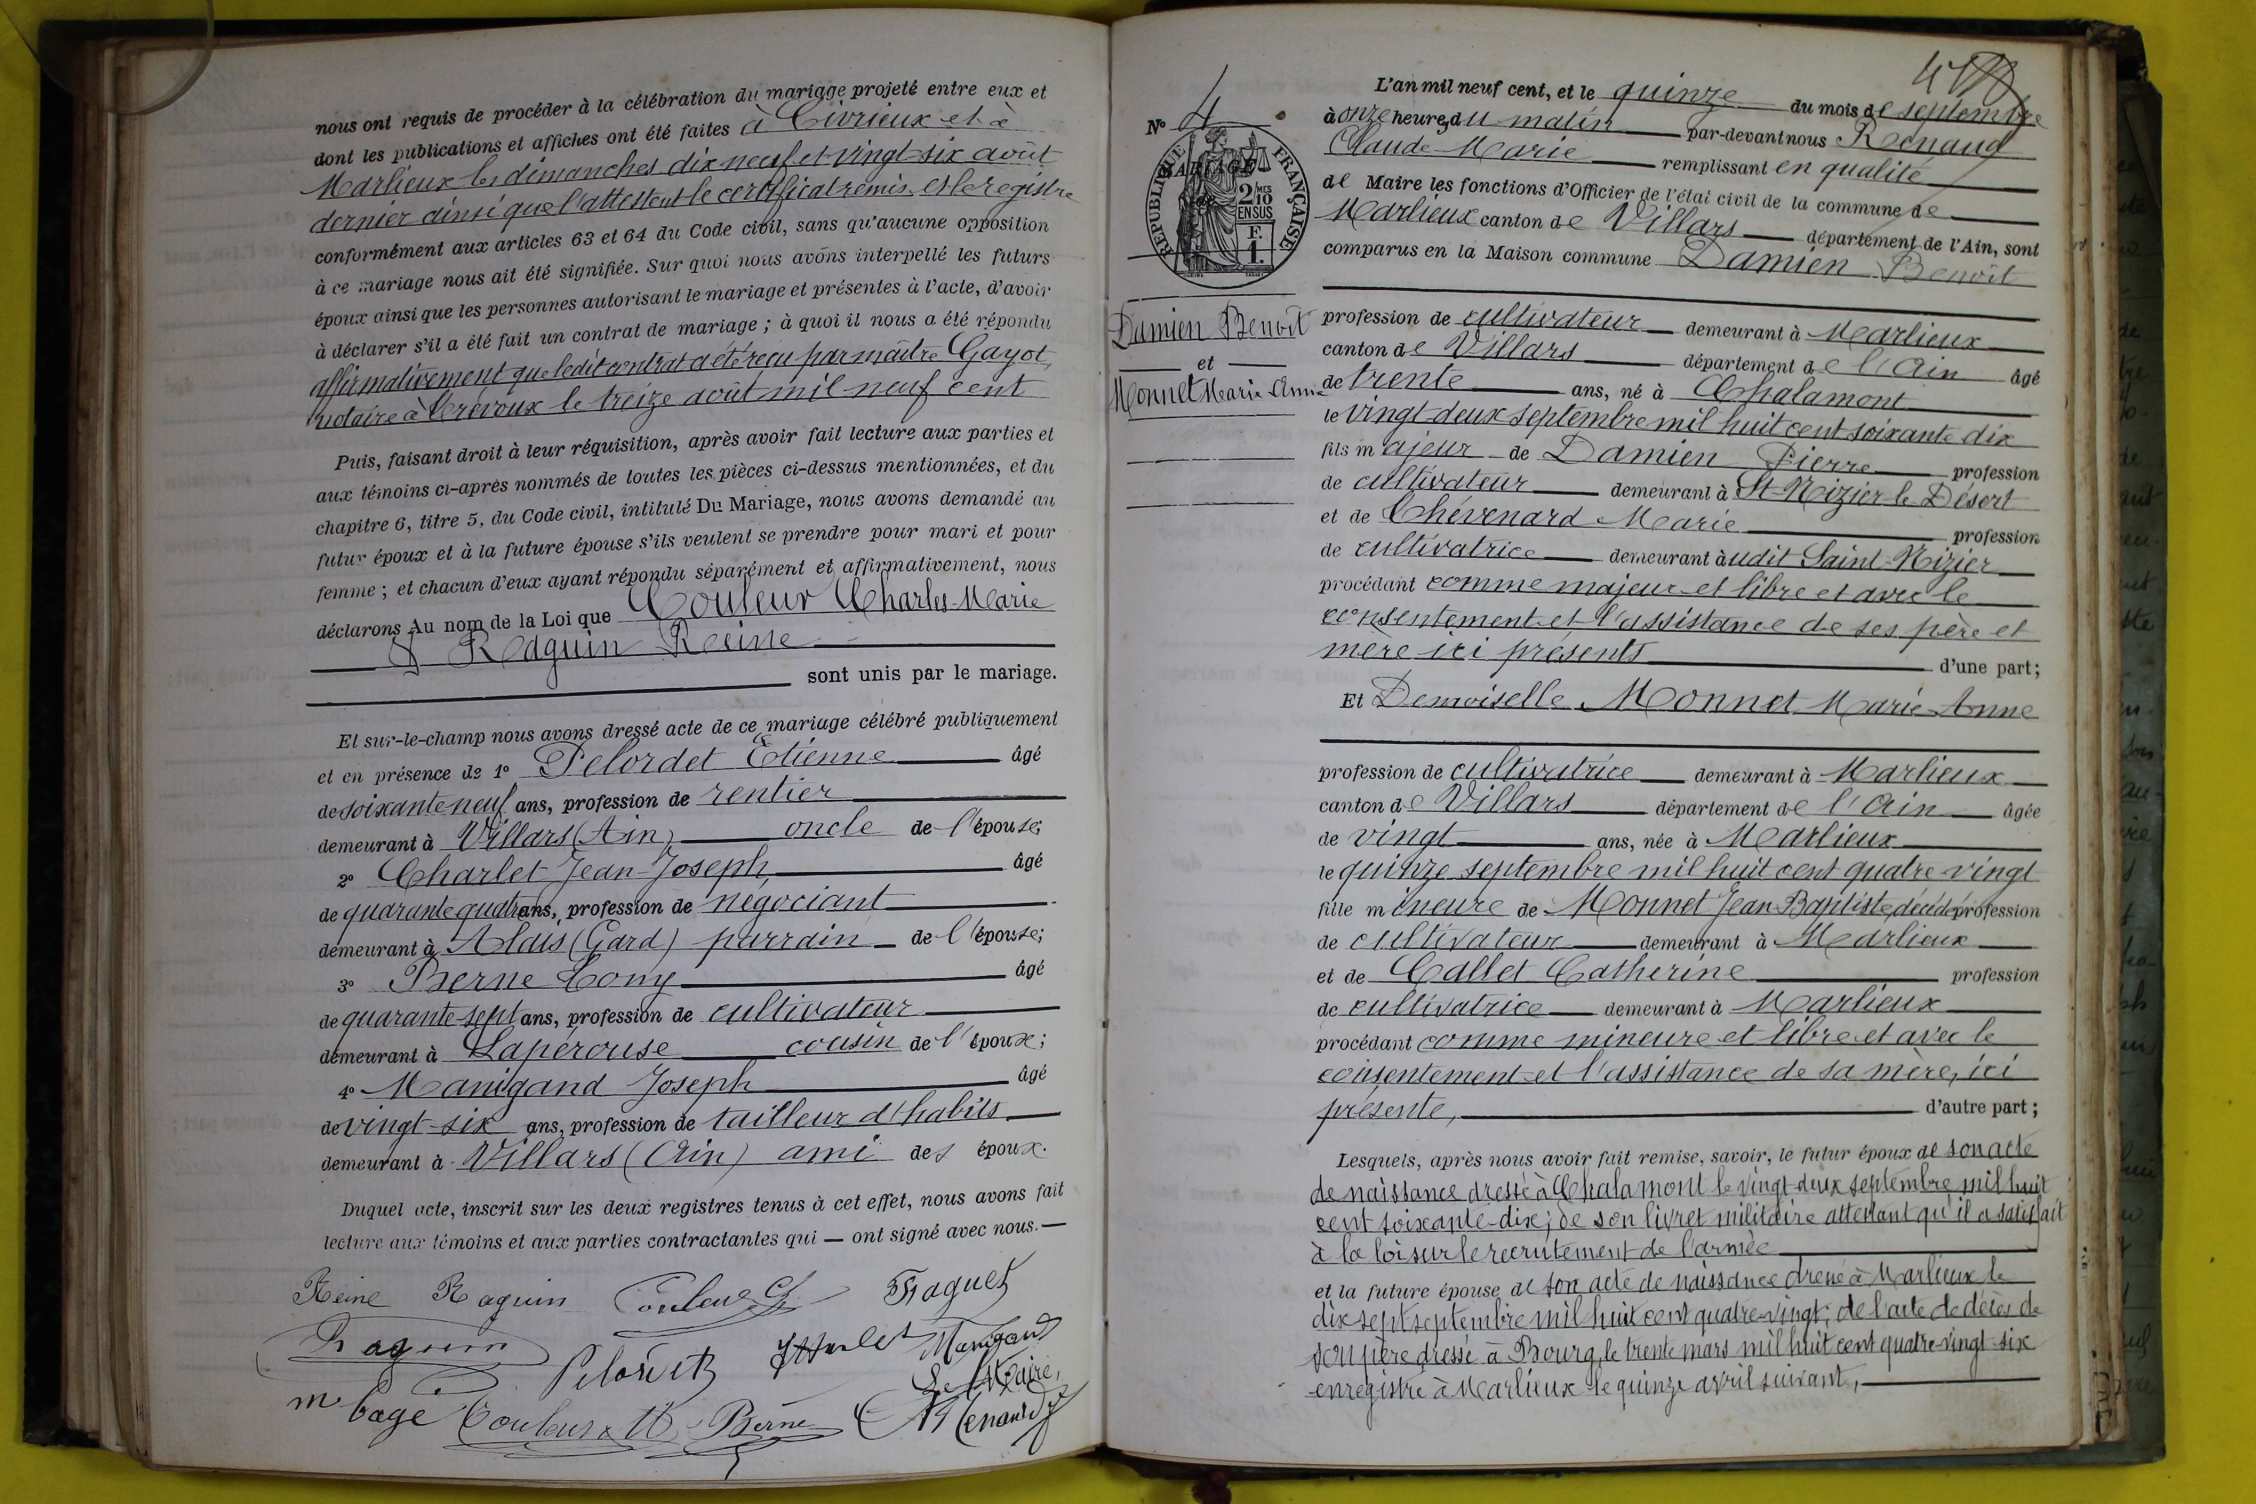 nous ont requis de procéder à la célébration du mariage projeté entre eux et
dont les publications et affiches ont été faites à Civrieux et à
Marlieux les dimanches dix neuf et vingt-six août
dernier ainsi que l'attestent le certificat remis et le registre
conformément aux articles 63 et 64 du Code civil, sans qu'aucune opposition
à ce mariage nous ait été signifiée. Sur quoi nous avons interpellé les futurs
époux ainsi que les personnes autorisant le mariage et présentes à l'acte, d'avoir
à déclarer s'il a été fait un contrat de mariage ; à quoi il nous a été répondu
affirmativement que ledit contrat a été reçu par maître Gayot,
notaire à Trévoux le treize août mil neuf cent
Puis, faisant droit à leur réquisition, après avoir fait lecture aux parties et
aux témoins ci-après nommés de toutes les pièces ci-dessus mentionnées, et du
chapitre 6, titre 5, du Code civil, intitulé Du Mariage, nous avons demandé au
futur époux et à la future épouse s'ils veulent se prendre pour mari et pour
femme ; et chacun d'eux ayant répondu séparément et affirmativement, nous
déclarons Au nom de la Loi que Couleur Charles-Marie
& Raguin Reine
sont unis par le mariage.
Et sur-le-champ nous avons dressé acte de ce mariage célébré publiquement
et en présence de 1° Pelordet Etienne âgé
de soixante neuf ans, profession de rentier
demeurant à Villars (Ain) oncle de l'épouse;
2° Charlet Jean-Joseph âgé
de quarante quatre ans, profession de négociant
demeurant à Alais (Gard) parrain de l'épouse;
3° Berne Tony âgé
de quarante-sept ans, profession de cultivateur
demeurant à Lapérouse cousin de l'époux;
4° Manigand Joseph âgé
de vingt-six ans, profession de tailleur d'habits
demeurant à Villars (Ain) ami des époux.
Duquel acte, inscrit sur les deux registres tenus à cet effet, nous avons fait
lecture aux témoins et aux parties contractantes qui — ont signé avec nous. —
Reine Raguin Couleur Ch Raguet
Raguin Pelordet JCharlet Manigand
Le Maire,
Couleur Berne Renaud
N° 4
RÉPUBLIQUE FRANÇAISE
2/10 MES
EN SUS
F.
1.
Damien Benoît
et
Monnet Marie Anne
L'an mil neuf cent, et le quinze du mois de septembre
à onze heures du matin par-devant nous Renaud
Claude-Marie remplissant en qualité
de Maire les fonctions d'Officier de l'état civil de la commune de
Marlieux canton de Villars département de l'Ain, sont
comparus en la Maison commune Damien Benoît
profession de cultivateur demeurant à Marlieux
canton de Villars département de l'Ain âgé
de trente ans, né à Chalamont
le vingt deux septembre mil huit cent soixante dix
fils majeur de Damien Pierre profession
de cultivateur demeurant à St-Nizier-le-Désert
et de Chévenard Marie profession
de cultivatrice demeurant audit Saint-Nizier
procédant comme majeur et libre et avec le
consentement et l'assistance de ses père et
mère ici présents d'une part;
Et Demoiselle Monnet Marie-Anne
profession de cultivatrice demeurant à Marlieux
canton de Villars département de l'Ain âgée
de vingt ans, née à Marlieux
le quinze septembre mil huit cent quatre-vingt
fille mineure de Monnet Jean-Baptiste, décédé profession
de cultivateur demeurant à Marlieux
et de Callet Catherine profession
de cultivatrice demeurant à Marlieux
procédant comme mineure et libre et avec le
consentement et l'assistance de sa mère, ici
présente, d'autre part;
Lesquels, après nous avoir fait remise, savoir, le futur époux de son acte
de naissance dressé à Chalamont le vingt-deux septembre mil huit
cent soixante-dix; de son livret militaire attestant qu'il a satisfait
à la loi sur le recrutement de l'armée
et la future épouse de son acte de naissance dressé à Marlieux le
dix sept septembre mil huit cent quatre-vingt; de l'acte de décès de
son père dressé à Bourg, le trente mars mil huit cent quatre-vingt-six
enregistré à Marlieux le quinze avril suivant,